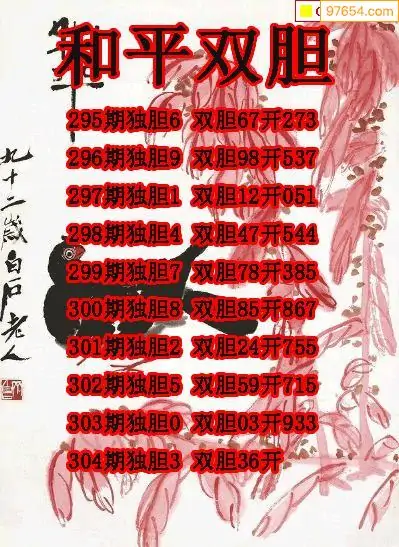 97654.com
和平双胆
295期独胆6 双胆67开273
296期独胆9 双胆98开537
297期独胆1 双胆12开051
298期独胆4 双胆47开544
299期独胆7 双胆78开385
300期独胆8 双胆85开867
301期独胆2 双胆24开755
302期独胆5 双胆59开715
303期独胆0 双胆03开933
304期独胆3 双胆36开
九十二歲白石老人